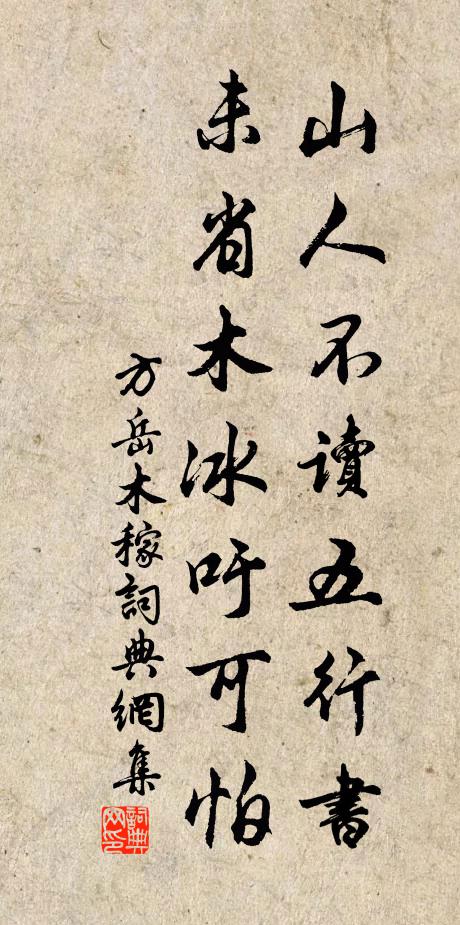 山人不讀五行書
未省木冰吁可怕
方岳木稼詞典網集
詞典網印